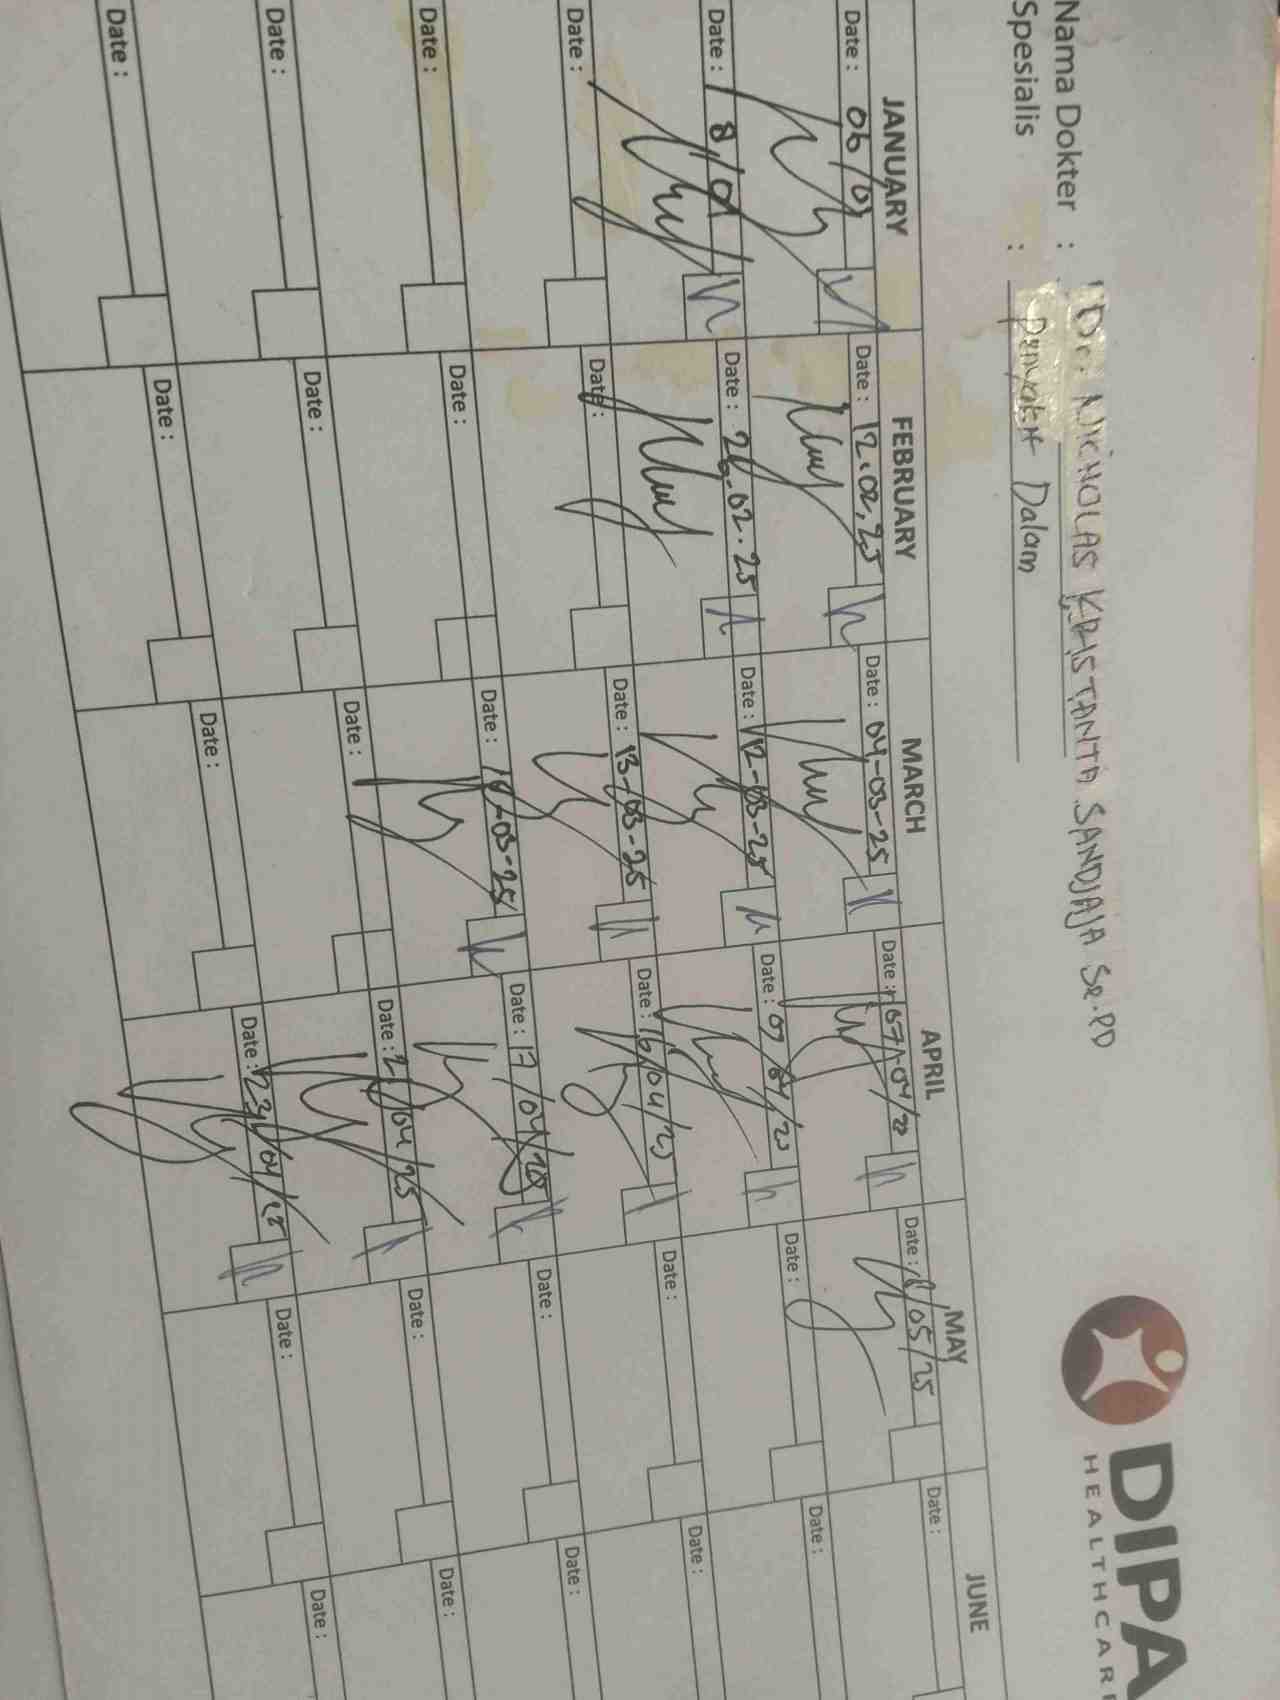 DIPA
HEALTHCAR
Nama Dokter : Dr. NICHOLAS KRISTANTA SANDJAJA Sp.PD
Spesialis : Penyakit Dalam
JANUARY FEBRUARY MARCH APRIL MAY JUNE
Date : 06/01 Date : 12.02.25 Date : 04-03-25 Date : Date : /05/25 Date :
Date : 8/01 Date : 26.02.25 Date : 12-03-25 Date : 09/04/25 Date : Date :
Date : Date : Date : 13-03-25 Date : 16/04/25 Date : Date :
Date : Date : Date : -03-25 Date : 17/04/25 Date : Date :
Date : Date : Date : Date : /04/25 Date : Date :
Date : Date : Date : Date : 23/04/25 Date : Date :